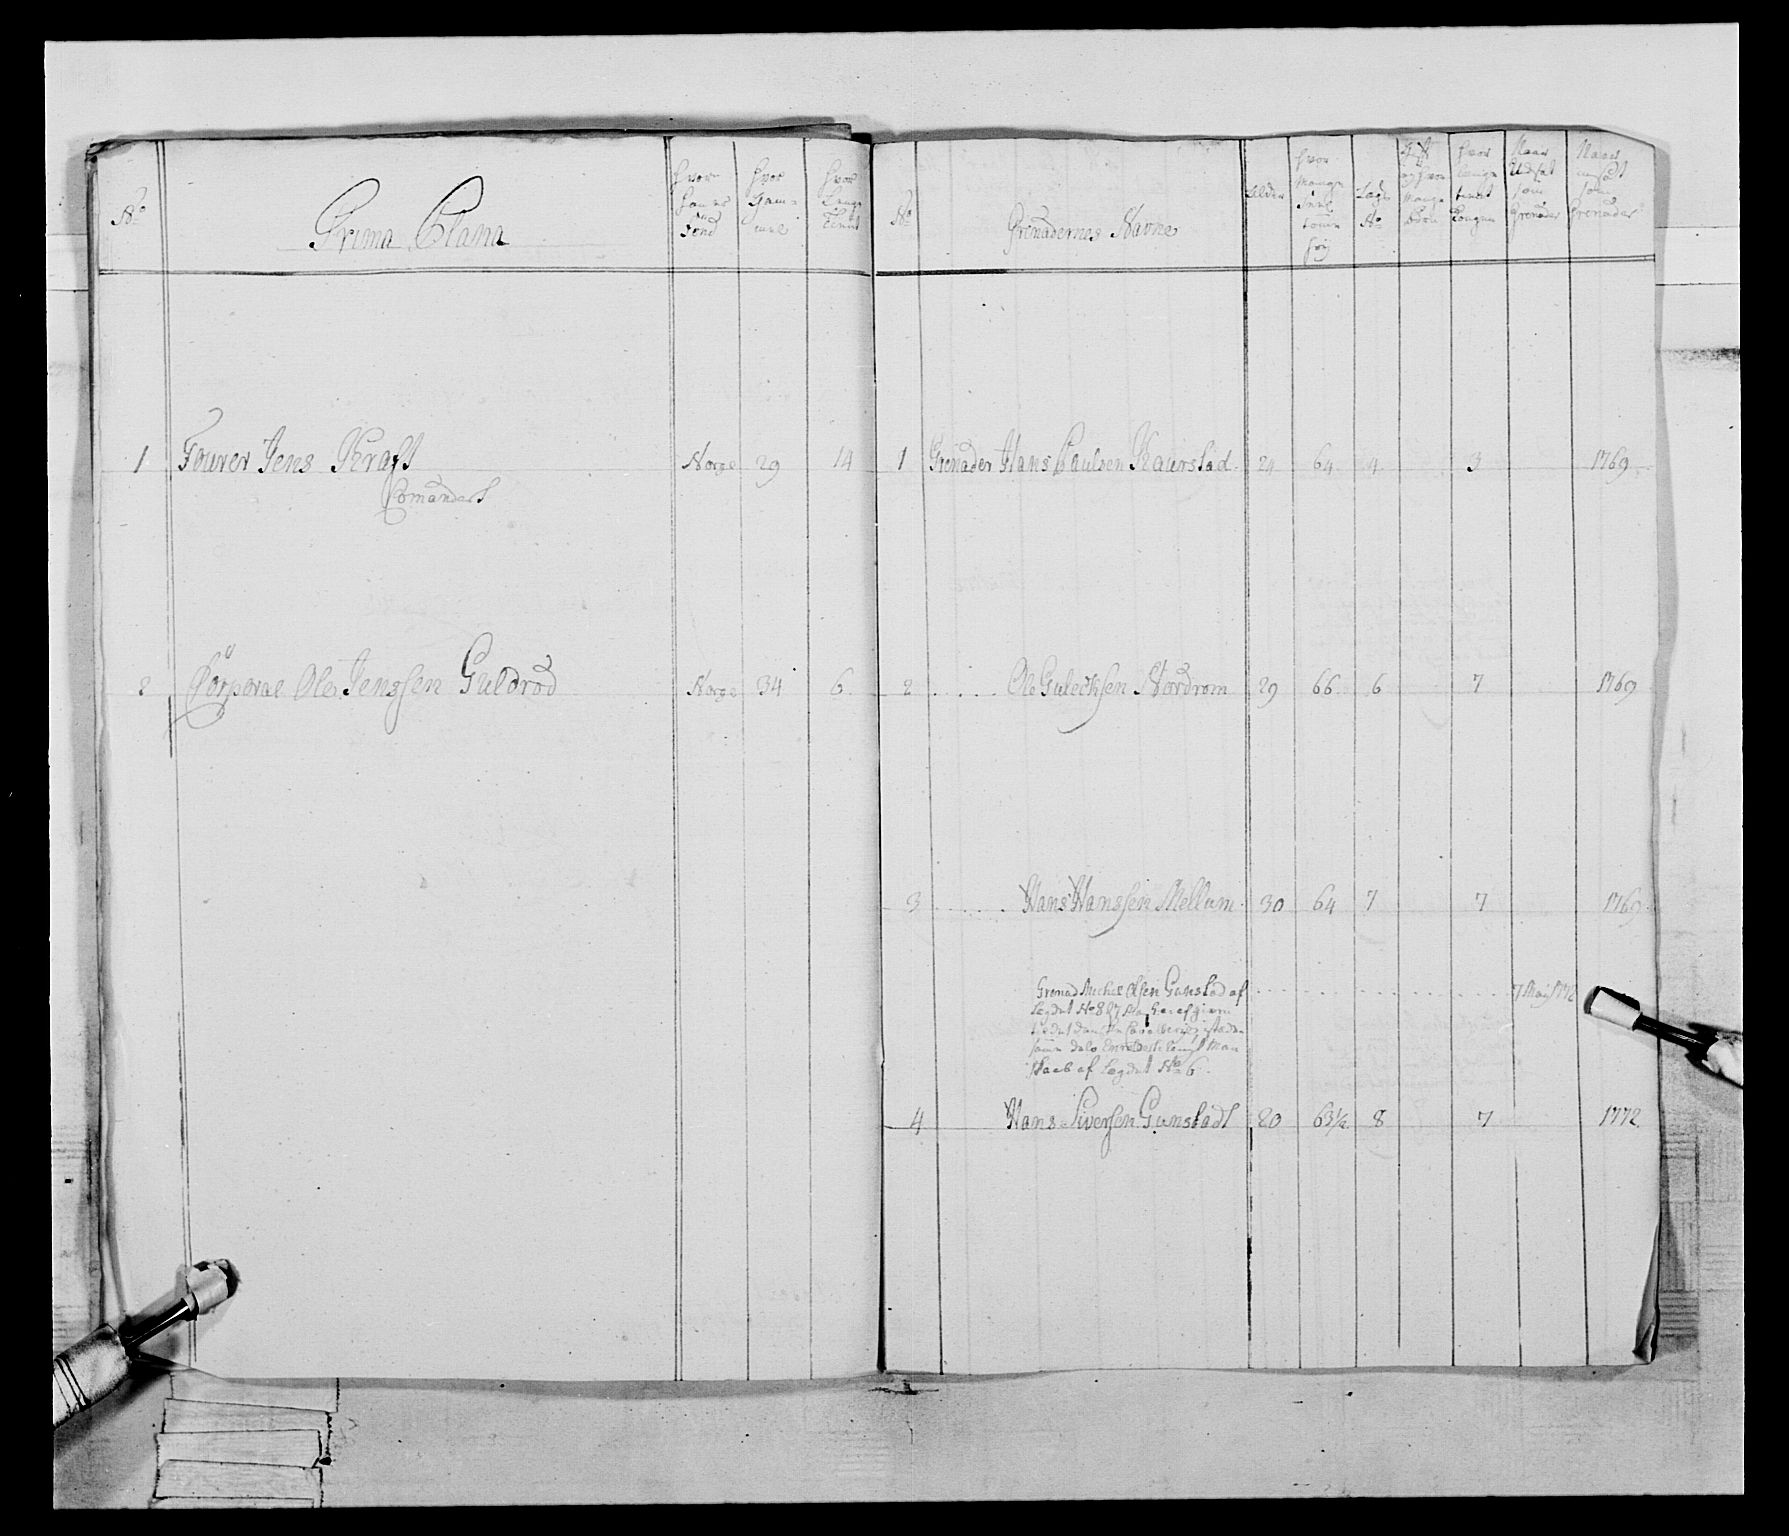 No
Prima Plana
hvor
hand er
Föed
hvor
Gam=
mel
hvor
Lenge
Tient
1 Fourer Jens Kraft Norge 29 14
Comandert
2 Corporal Ole Jenssen Guldrod Norge 34 6
No
Grenadernes Navne
Alder
hvor
Mange
Tomer
høj
Lægs
No
Gift
og hvor
Mange
Børn
hvor
Længe
tient
Kongen
Naar
Udsat
som
Grenader
Naar
indsadt
som
Grenader
1 Grenader Hans Paulsen Kaurstad 24 64 4 3 1769
2 Ole Gulecksen Nordrom 29 66 6 7 1769
3 Hans Hanssen Mellum 30 64 7 7 1769
Grenad Michel Olsen Gunstad af
Legdet No 8
7 Maij 1772
skab af Legdet No 6
4 Hans Siversen Gunstadt 20 63½ 8 7 1772